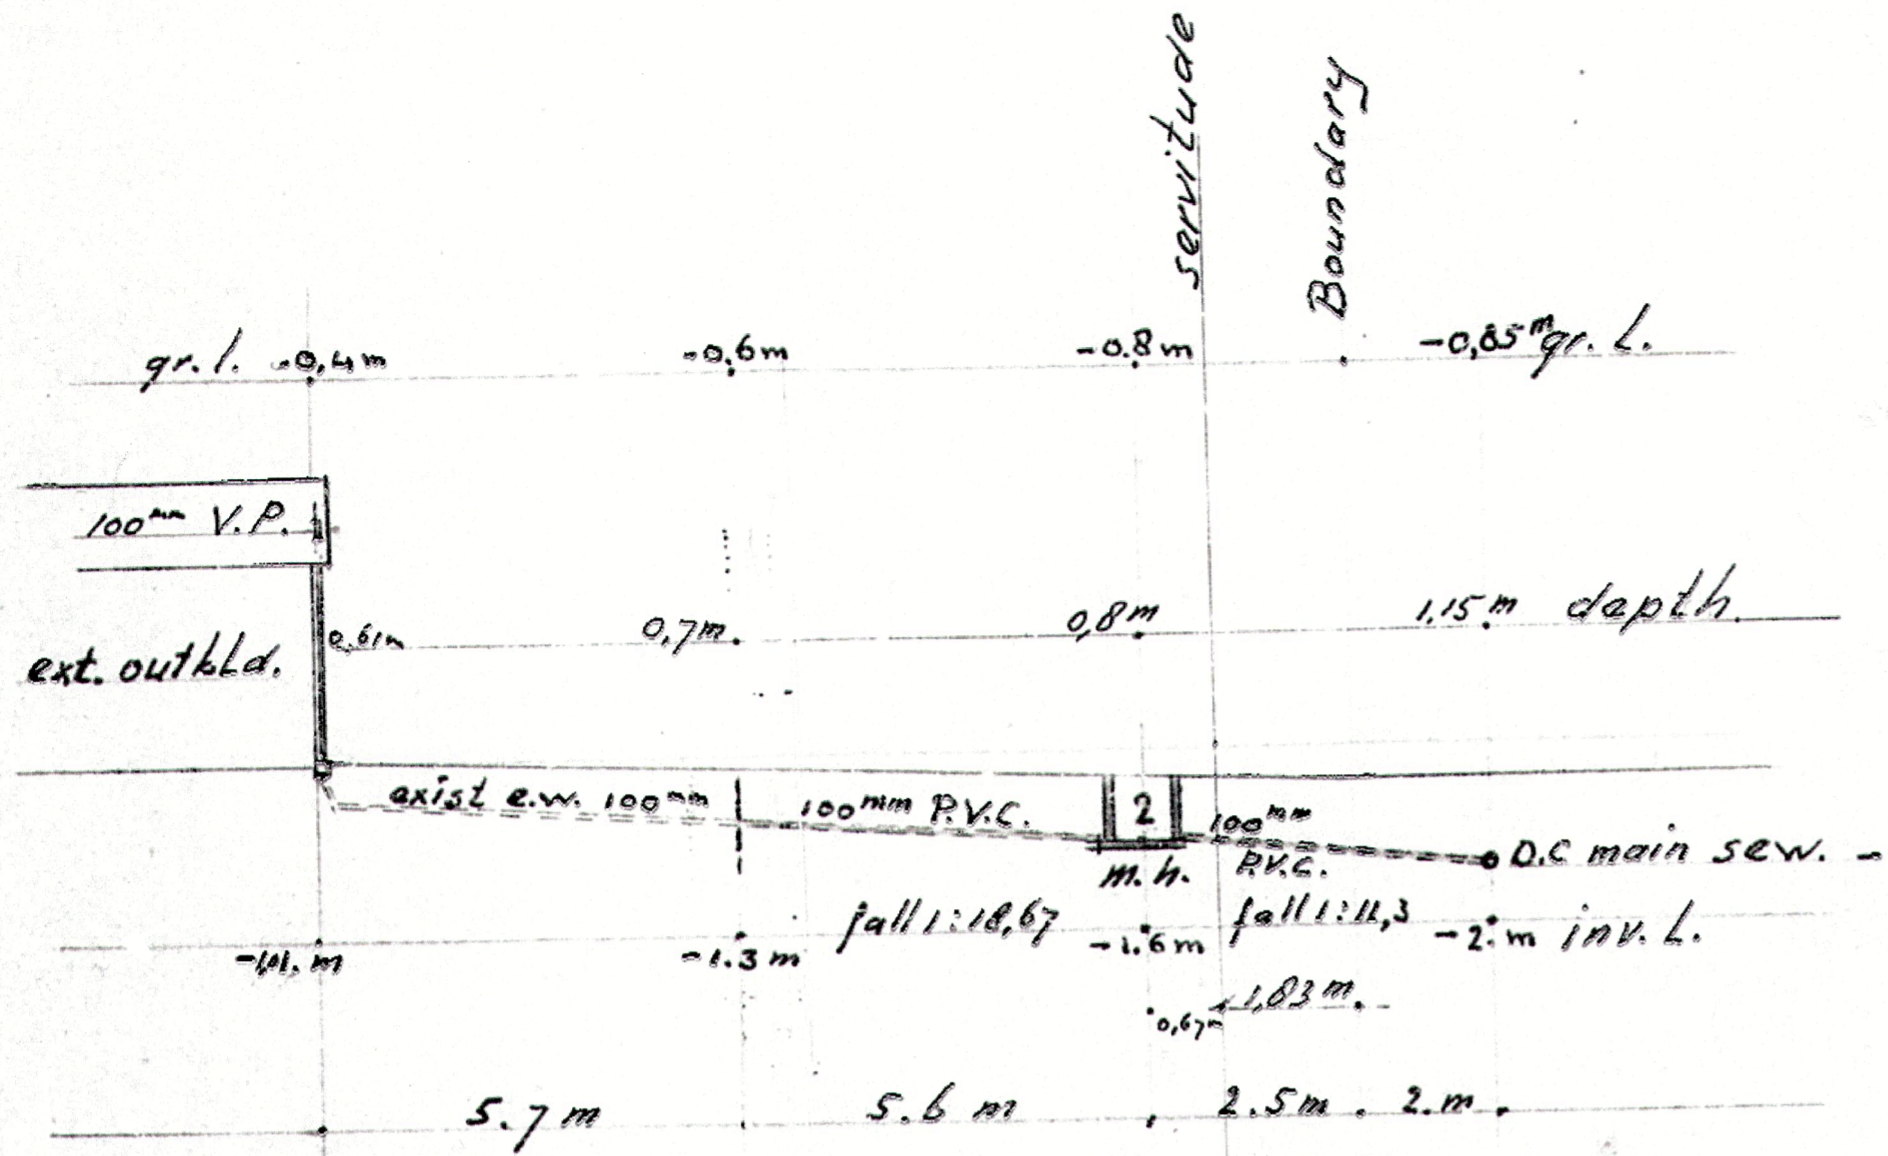 servitude
Boundary
gr. l. -0,4m -0,6m -0.8m -0,85m gr. L.
100mm V.P.
0,61m 0,7m. 0,8m 1,15m depth.
ext. outbld.
exist e.w. 100mm 100mm P.V.C. 2 100mm
P.V.C.
D.C main sew. -
m.h.
fall 1:18,67 fall 1:11,3
-1.3 m -1.6 m -2. m inv. L.
0,67m 1,83m.
5.7 m 5.6 m 2.5m. 2.m.